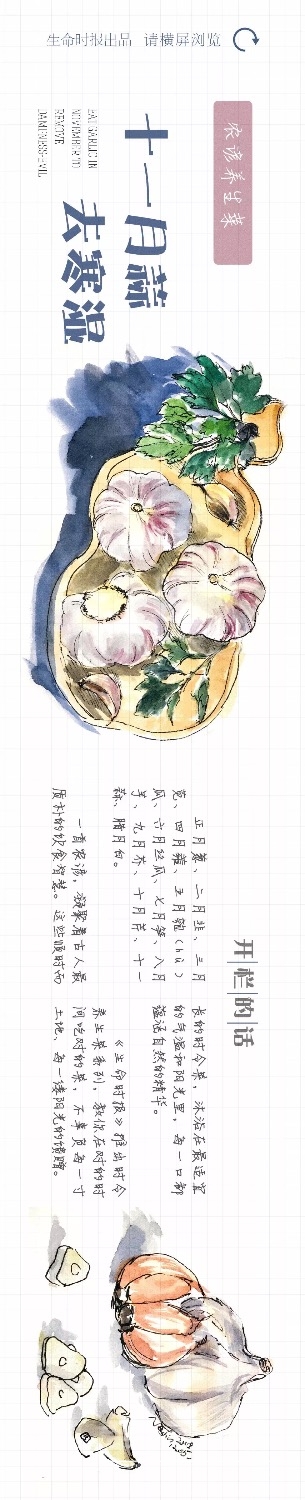 生命时报出品 请横屏浏览
农谚养生菜
十一月蒜
去寒湿
EAT GARLIC IN
NOVEMBER TO
REMOVE
DAMPNESS EVIL
开栏的话
正月葱、二月韭、三月
苋、四月蕹、五月匏(hù)
瓜、六月丝瓜、七月笋、八月
芋、九月芥、十月芹、十一
蒜、腊月白。
一首农谚，凝聚着古人最
质朴的饮食智慧。这些顺时而
长的时令菜，沐浴在最适宜
的气温和阳光里，每一口都
蕴涵自然的精华。
《生命时报》推出时令
养生菜系列，教你在对的时
间吃对的菜，不辜负每一寸
土地、每一缕阳光的馈赠。